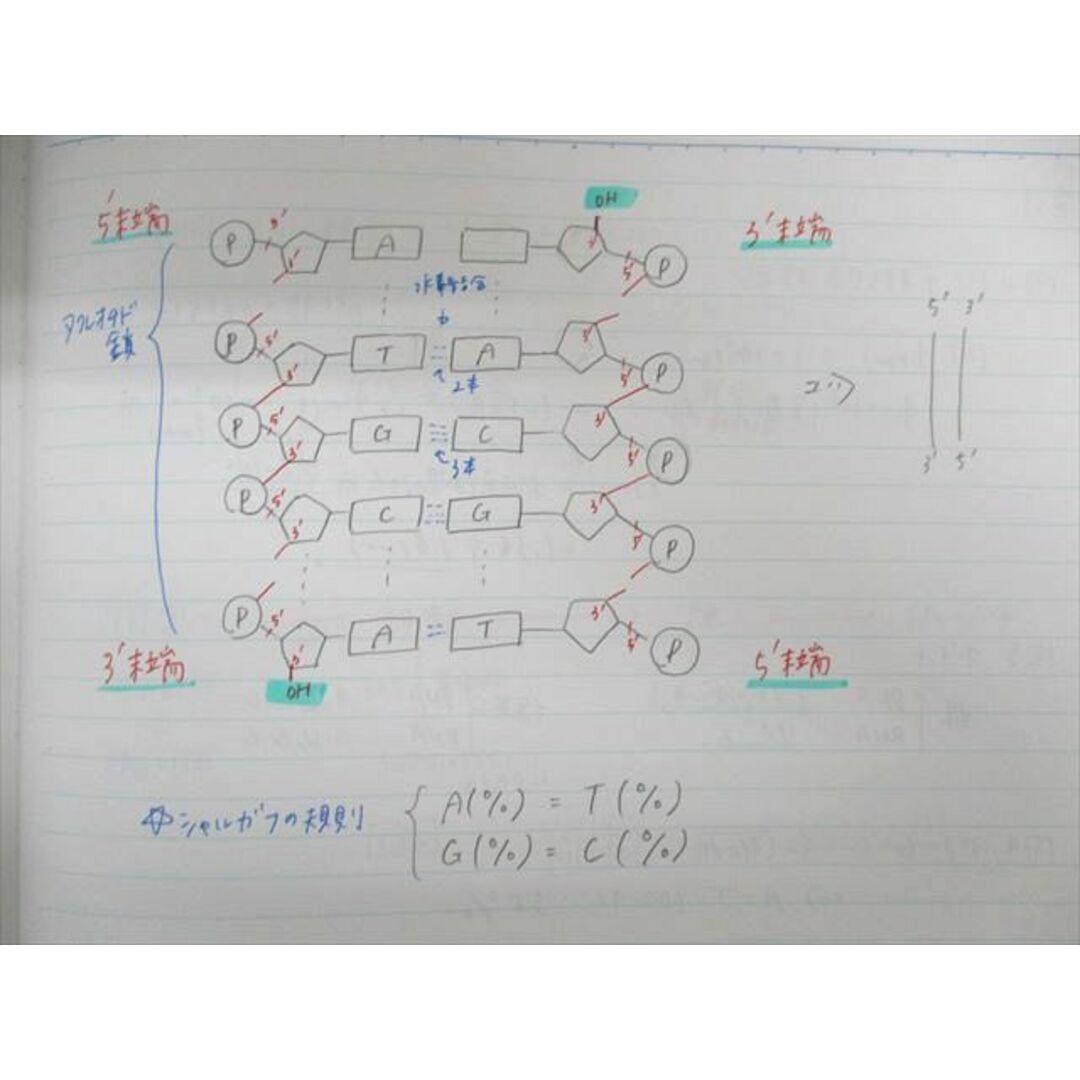 5'末端
OH
3'末端
P 5' 3' A 3' 5' P
ヌクレオチド鎖
水素結合
P 5' 3' T A 3' 5' P
2本
P 5' 3' G C 3' 5' P
3本
P 5' 3' C G 3' 5' P
P 5' 3' A T 3' 5' P
3'末端
OH
5'末端
5' 3'
3' 5'
シャルガフの規則
A(%) = T(%)
G(%) = C(%)